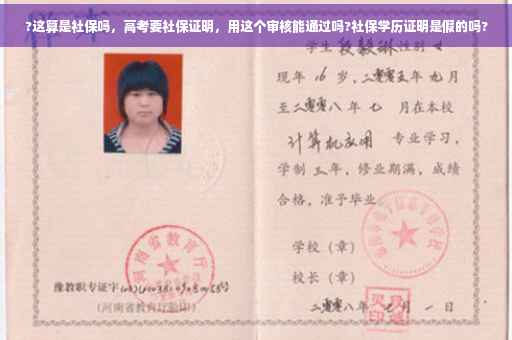 ?这算是社保吗，高考要社保证明，用这个审核能通过吗?社保学历证明是假的吗?
学生段毅琳性别女
现年16岁，二零零五年九月
至二零零八年七月在本校
计算机应用 专业学习，
学制三年，修业期满，成绩
合格，准予毕业
学校（章）
校长（章）
二零零八年 月一日
河南省教育厅
豫教职专证字
（河南省教育厅验印）